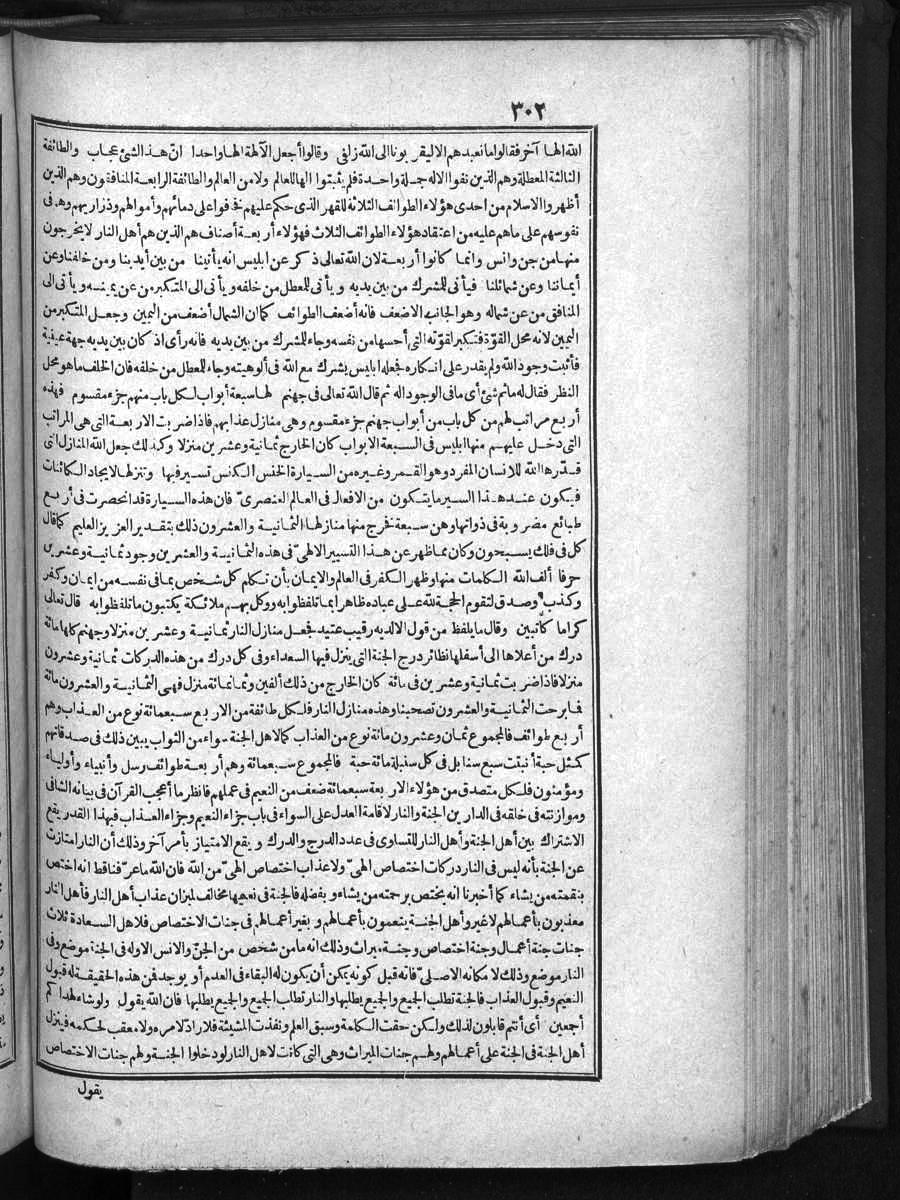 ٣٠٢
الله الها آخر فقالوا ما نعبدهم الا ليقربونا الى الله زلفى وقالوا أجعل الآلهة الها واحدا انّ هذا الشئ عجاب والطائفة
الثالثة المعطلة وهم الذين نفوا الاله جملة واحدة فلم يثبتوا الها للعالم ولا من العالم والطائفة الرابعة المنافقون وهم الذين
أظهروا الاسلام من احدى هؤلاء الطوائف الثلاثة للقهر الذى حكم عليهم فخافوا على دمائهم وأموالهم وذراريهم وهم فى
نفوسهم على ماهم عليه من اعتقاد هؤلاء الطوائف الثلاث فهؤلاء أربعة أصناف هم الذين هم أهل النار لا يخرجون
منها من جن وانس وانما كانوا أربعة لان الله تعالى ذكر عن ابليس انه يأتينا من بين أيدينا ومن خلفنا وعن
أيماننا وعن شمائلنا فيأتى للمشرك من بين يديه ويأتى للمعطل من خلفه ويأتى الى المتكبر من عن يمينه ويأتى الى
المنافق من عن شماله وهو الجانب الاضعف فانه أضعف الطوائف كما ان الشمال أضعف من اليمين وجعل المتكبر من
اليمين لانه محل القوّة فتكبر لقوّته التى أحسها من نفسه وجاء للمشرك من بين يديه فانه رأى اذ كان بين يديه جهة عينية
فأثبت وجود الله ولم يقدر على انكاره فجعله ابليس يشرك مع الله فى ألوهيته وجاء للمعطل من خلفه فان الخلف ماهو محل
النظر فقال له ماثم شئ أى مافى الوجود اله ثم قال الله تعالى فى جهنم لها سبعة أبواب لكل باب منهم جزء مقسوم فهذه
أربع مراتب لهم من كل باب من أبواب جهنم جزء مقسوم وهى منازل عذابهم فاذا ضربت الاربعة التى هى المراتب
التى دخل عليهم منها ابليس فى السبعة الابواب كان الخارج ثمانية وعشرين منزلا وكذلك جعل الله المنازل التى
قدّرها الله للانسان المفرد وهو القمر وغيره من السيارة الخنس الكنس تسير فيها وتنزلها لايجاد الكائنات
فيكون عند هذا السير ما يتكون من الافعال فى العالم العنصرىّ فان هذه السيارة قد انحصرت فى أربع
طبائع مضروبة فى ذواتها وهن سبعة فخرج منها منازلها الثمانية والعشرون ذلك بتقدير العزيز العليم كما قال
كل فى فلك يسبحون وكان مما ظهر عن هذا التسيير الالهىّ فى هذه الثمانية والعشرين وجود ثمانية وعشرين
حرفا ألف الله الكلمات منها وظهر الكفر فى العالم والايمان بأن تكلم كل شخص بما فى نفسه من ايمان وكفر
وكذب وصدق لتقوم الحجة لله على عباده ظاهرا بما تلفظوا به ووكل بهم ملائكة يكتبون ما تلفظوا به قال تعالى
كراما كاتبين وقال ما يلفظ من قول الا لديه رقيب عتيد فجعل منازل النار ثمانية وعشرين منزلا وجهنم كلها مائة
درك من أعلاها الى أسفلها نظائر درج الجنة التى ينزل فيها السعداء وفى كل درك من هذه الدركات ثمانية وعشرون
منزلا فاذا ضربت ثمانية وعشرين فى مائة كان الخارج من ذلك ألفين وثمانمائة منزل فهى الثمانية والعشرون مائة
فما برحت الثمانية والعشرون تصحبنا وهذه منازل النار فلكل طائفة من الاربع سبعمائة نوع من العذاب وهم
أربع طوائف فالمجموع ثمان وعشرون مائة نوع من العذاب كما لاهل الجنة سواء من الثواب يبين ذلك فى صدقاتهم
كمثل حبة أنبتت سبع سنابل فى كل سنبلة مائة حبة فالمجموع سبعمائة وهم أربعة طوائف رسل وأنبياء وأولياء
ومؤمنون فلكل متصدق من هؤلاء الاربعة سبعمائة ضعف من النعيم فى عملهم فانظر ما أعجب القرآن فى بيانه الشافى
وموازنته فى خلقه فى الدارين الجنة والنار لاقامة العدل على السواء فى باب جزاء النعيم وجزاء العذاب فبهذا القدر يقع
الاشتراك بين أهل الجنة وأهل النار للتساوى فى عدد الدرج والدرك ويقع الامتياز بأمر آخر وذلك أن النار امتازت
عن الجنة بأنه ليس فى النار دركات اختصاص الهىّ ولا عذاب اختصاص الهىّ من الله فان الله ماعرّفنا قط انه اختص
بنقمته من يشاء كما أخبرنا انه يختص برحمته من يشاء وبفضله فالجنة فى نعيمها مخالف لميزان عذاب أهل النار فأهل النار
معذبون بأعمالهم لا غير وأهل الجنة ينعمون بأعمالهم وبغير أعمالهم فى جنات الاختصاص فلاهل السعادة ثلاث
جنات جنة أعمال وجنة اختصاص وجنة ميراث وذلك انه مامن شخص من الجنّ والانس الا وله فى الجنة موضع وفى
النار موضع وذلك لامكانه الاصلىّ فانه قبل كونه يمكن أن يكون له البقاء فى العدم أو يوجد فمن هذه الحقيقة له قبول
النعيم وقبول العذاب فالجنة تطلب الجميع والجميع يطلبها والنار تطلب الجميع والجميع يطلبها فان الله يقول ولو شاء لهداكم
أجمعين أى أنتم قابلون لذلك ولكن حقت الكلمة وسبق العلم ونفذت المشيئة فلا رادّ لامره ولا معقب لحكمه فينزل
أهل الجنة فى الجنة على أعمالهم ولهم جنات الميراث وهى التى كانت لاهل النار لو دخلوا الجنة ولهم جنات الاختصاص
يقول